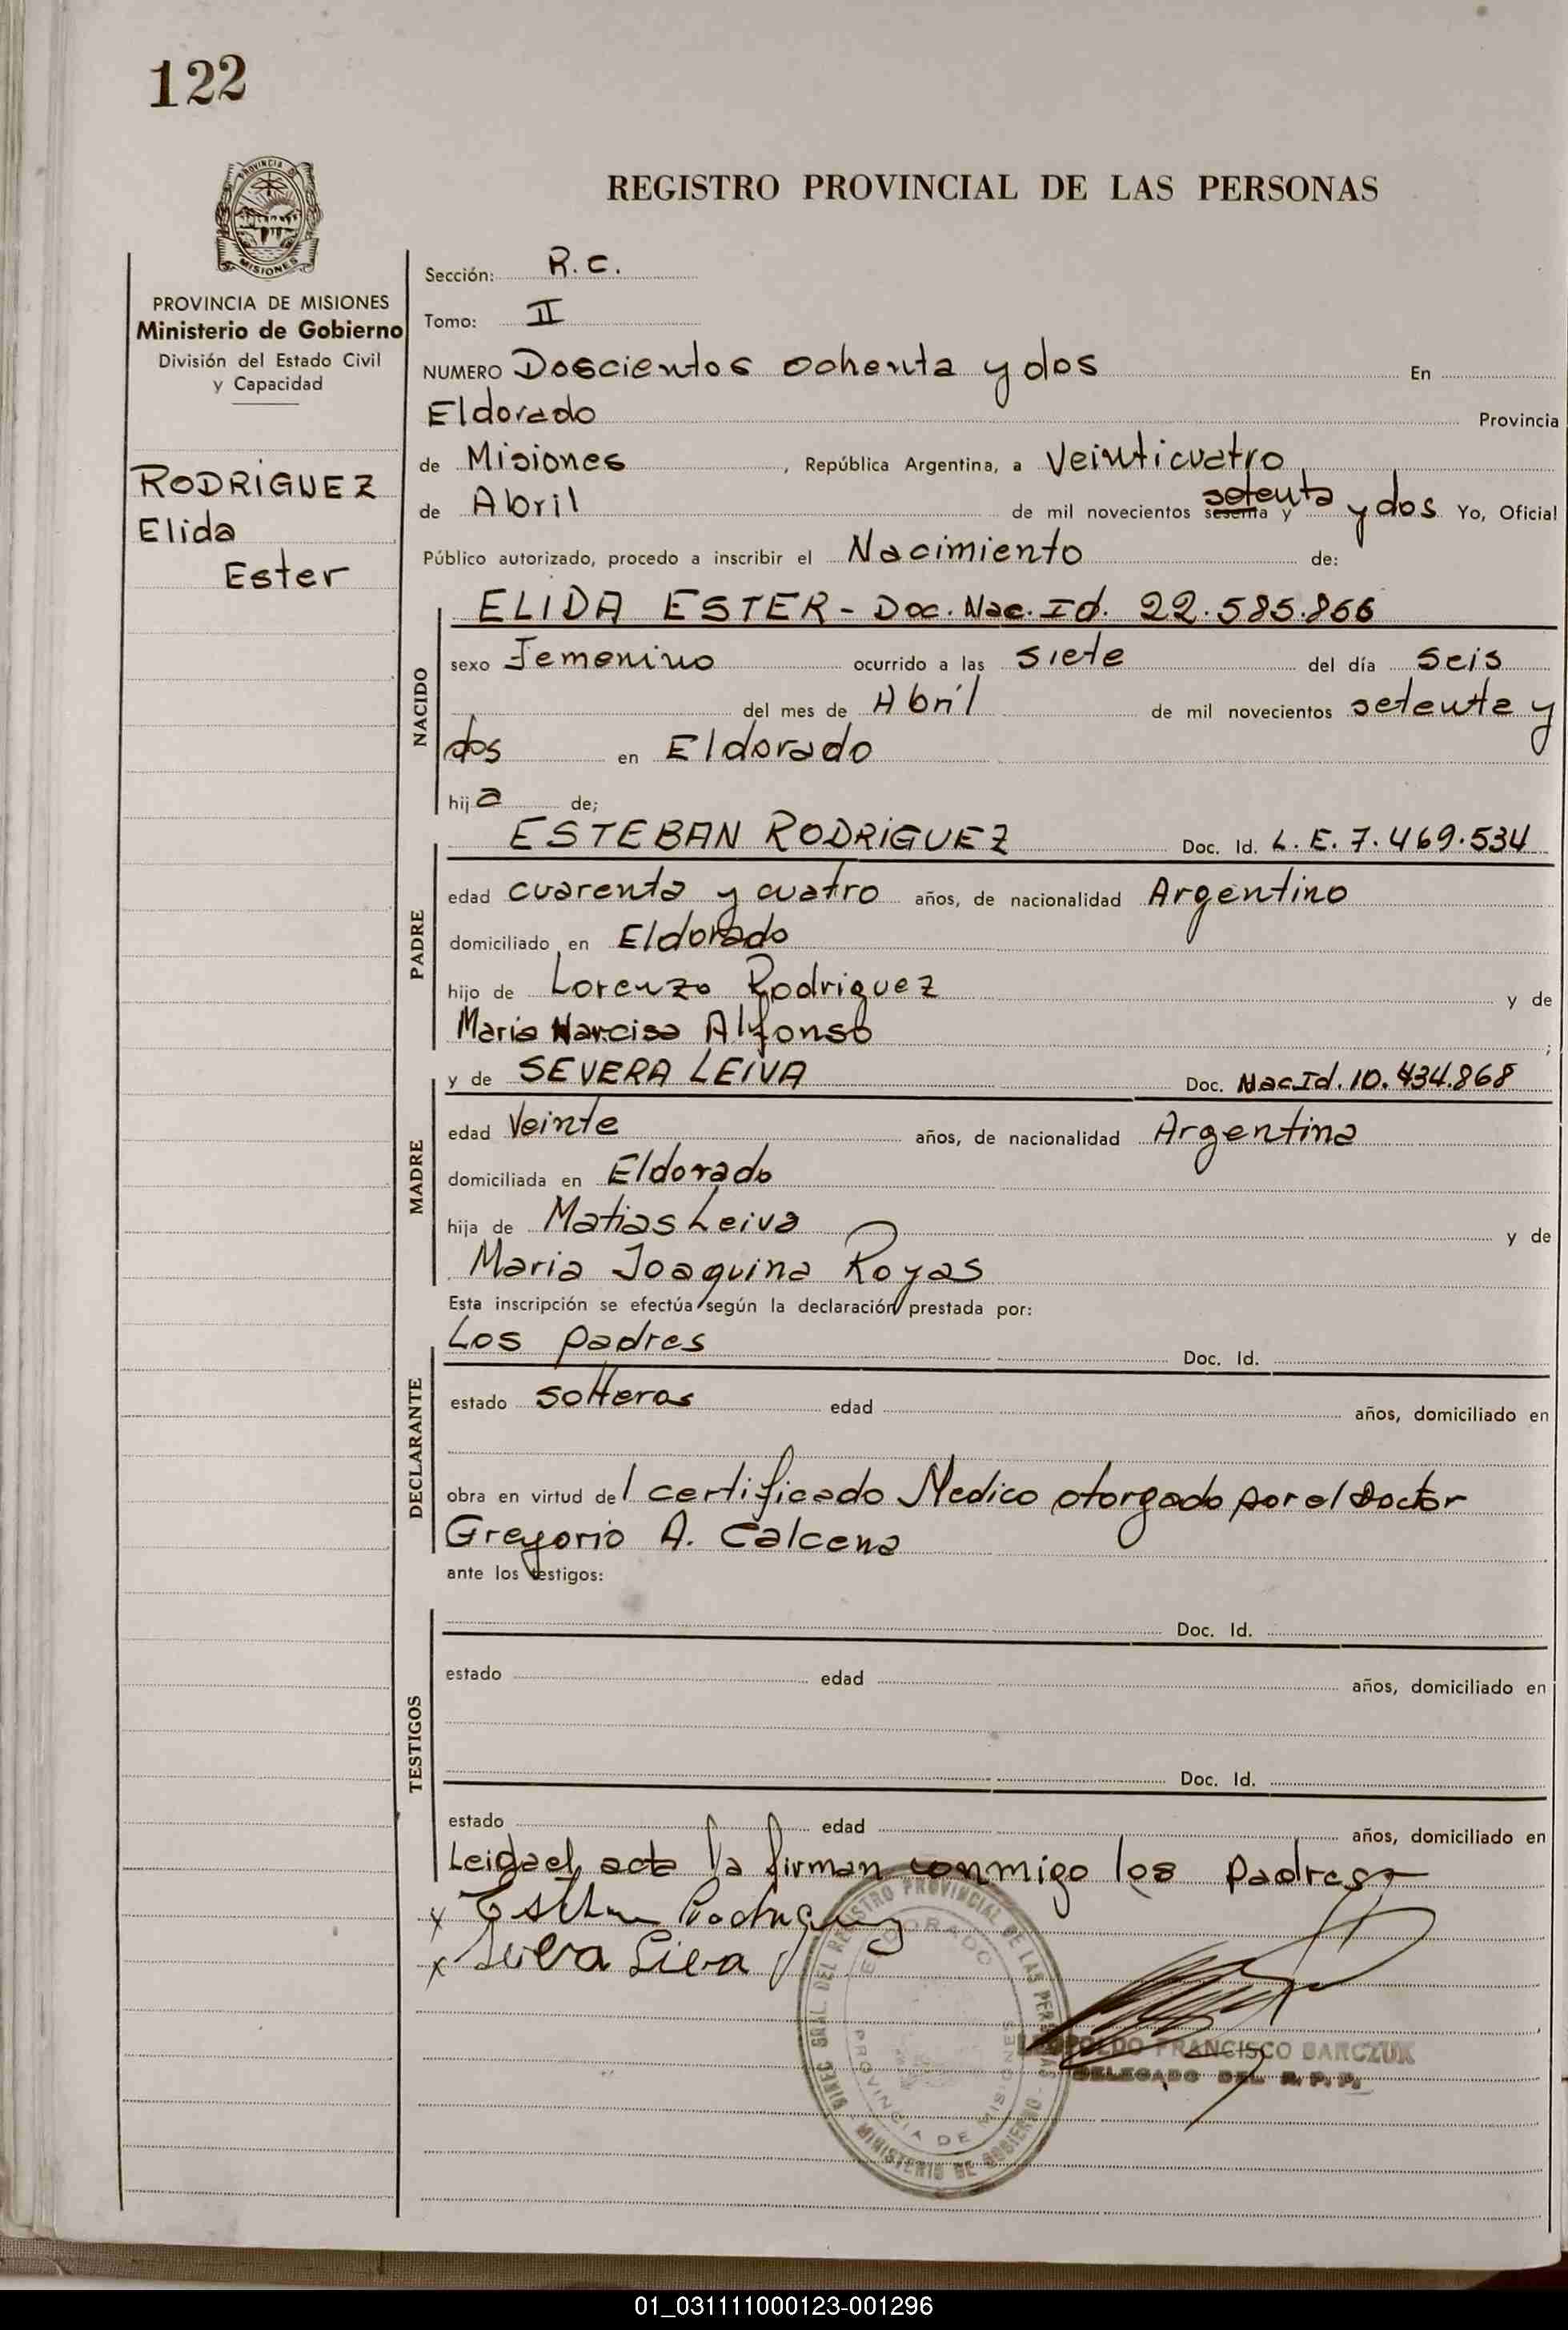 122
REGISTRO PROVINCIAL DE LAS PERSONAS
PROVINCIA DE
MISIONES
PROVINCIA DE MISIONES
Ministerio de Gobierno
División del Estado Civil
y Capacidad
RODRIGUEZ
Elida
Ester
Sección: R.C.
Tomo: II
NUMERO Doscientos ochenta y dos En
Eldorado Provincia
de Misiones, República Argentina, a Veinticuatro
de Abril de mil novecientos sesenta y setenta y dos Yo, Oficial
Público autorizado, procedo a inscribir el Nacimiento de:
NACIDO
ELIDA ESTER - Doc. Nac. Id. 22.585.866
sexo Femenino ocurrido a las siete del día seis
del mes de Abril de mil novecientos setenta y
dos en Eldorado
hija de;
PADRE
ESTEBAN RODRIGUEZ Doc. Id. L.E. 7.469.534
edad cuarenta y cuatro años, de nacionalidad Argentino
domiciliado en Eldorado
hijo de Lorenzo Rodriguez y de
Maria Narcisa Alfonso ;
MADRE
y de SEVERA LEIVA Doc. Nac Id. 10.434.868
edad Veinte años, de nacionalidad Argentina
domiciliada en Eldorado
hija de Matias Leiva y de
Maria Joaquina Royas
Esta inscripción se efectúa según la declaración prestada por:
DECLARANTE
Los padres Doc. Id.
estado solteros edad años, domiciliado en
obra en virtud del certificado Medico otorgado por el Doctor
Gregorio A. Calcena
ante los testigos:
TESTIGOS
Doc. Id.
estado edad años, domiciliado en
Doc. Id.
estado edad años, domiciliado en
Leida el acta la firman conmigo los padres
x Esteban Rodriguez
x
DIREC. GRAL. DEL REGISTRO PROVINCIAL DE LAS PERSONAS
ELDORADO
PROVINCIA DE MISIONES
MINISTERIO DE GOBIERNO
LEOPOLDO FRANCISCO BARCZUK
DELEGADO DEL R.P.P.
01_031111000123-001296